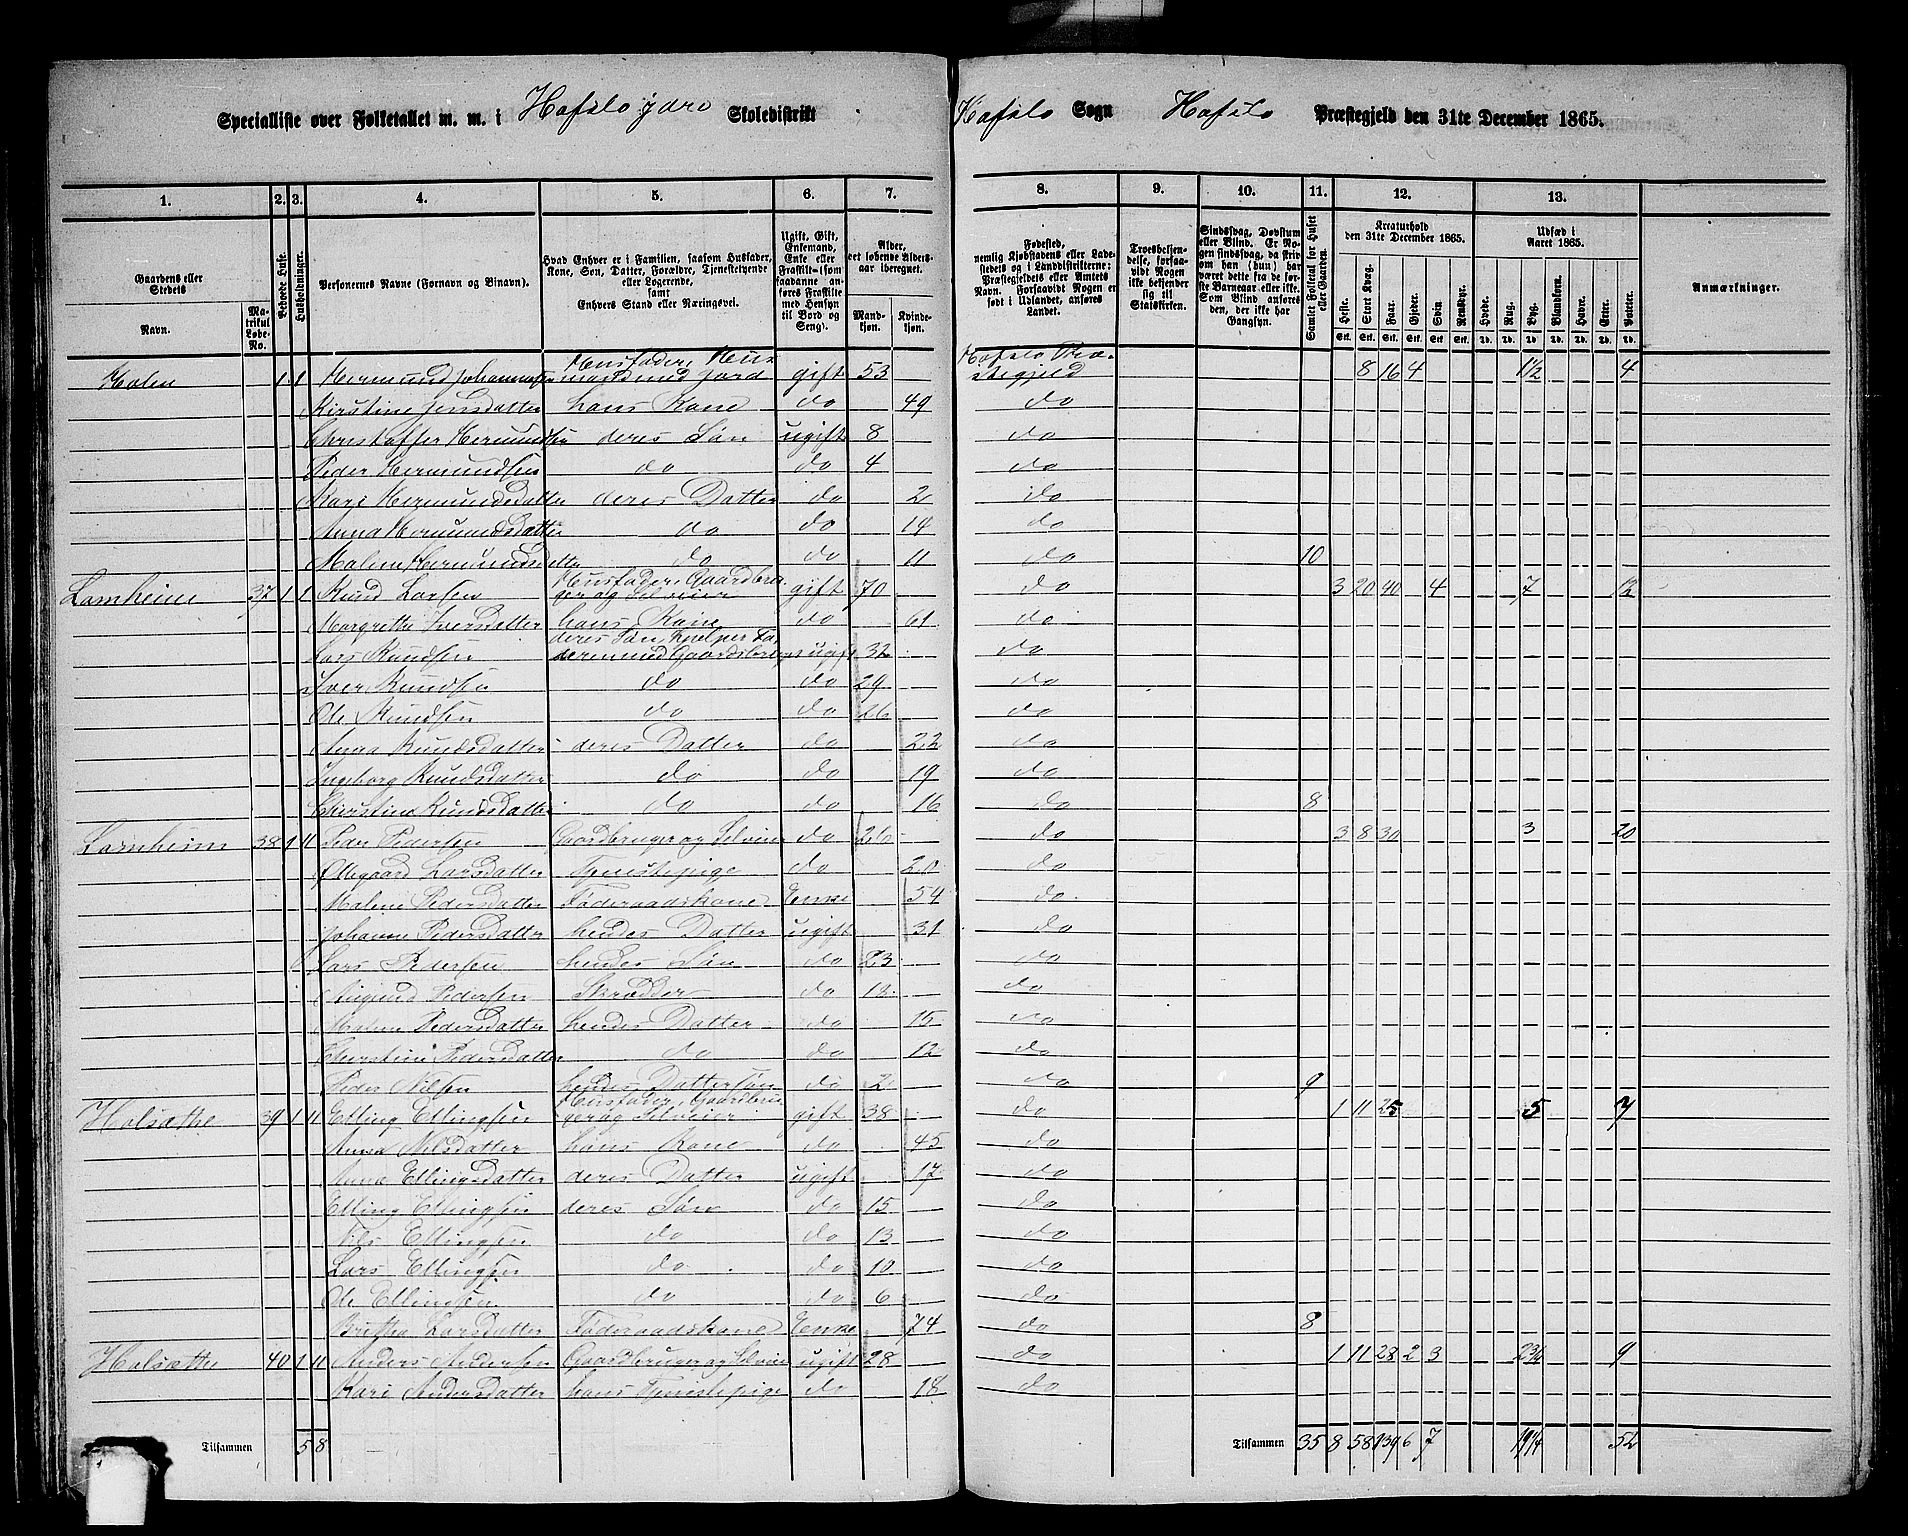 Specialliste over Folketallet m. m. i Hafslo ydre Skoledistrikt Hafslo Sogn Hafslo Præstegjeld den 31te December 1865.
1. 2. 3. 4. 5. 6. 7. 8. 9. 10. 11. 12. 13.
Gaardens eller Stedets
Navn.
Matrikul Løbe-No.
Beboede Huse.
Husholdninger.
Personernes Navne (Fornavn og Binavn).
Hvad Enhver er i Familien, saasom Husfader, Kone, Søn, Datter, Forældre, Tjenestetyende eller Logerende, samt Enhvers Stand eller Næringsvei.
Ugift, Gift, Enkemand, Enke eller Fraskilt (som saadanne anføres Fraskilte med Hensyn til Bord og Seng).
Alder, det løbende Aldersaar iberegnet.
Mandkjøn. Kvindekjøn.
Fødested, nemlig Kjøbstadens eller Ladestedets og i Landdistrikterne: Præstegjeldets eller Amtets Navn. Forsaavidt Nogen er født i Udlandet, anføres Landet.
Troesbekjendelse, forsaavidt Nogen ikke bekjender sig til Statskirken.
Sindssvag, Døvstum eller Blind. Er Nogen sindssvag, da skrives om han (hun) har været dette fra de første Barneaar eller ikke. Som Blind anføres den, der ikke har Gangsyn.
Samlet Folketal for Huset eller Gaarden.
Kreaturhold den 31te December 1865.
Heste. Stort Kvæg. Faar. Gjeder. Svin. Rensdyr.
Udsæd i Aaret 1865.
Hvede. Rug. Byg. Blandkorn. Havre. Erter. Poteter.
Anmærkninger.
Molen 1 1 Hermund Johannesen Husfader, Husmand med Jord gift 53 Hafslo Præstegjeld 8 16 4 1½ 4
Kirstine Jensdatter hans Kone do 49 do
Christoffer Hermundsen deres Søn ugift 8 do
Peder Hermundsen do do 4 do
Kari Hermundsdatter deres Datter do 2 do
Anna Hermundsdatter do do 14 do
Malene Hermundsdatter do do 11 do 10
Lamheim 37 1 1 Knud Larsen Husfader, Gaardbruger og Selveier gift 70 do 3 20 40 4 7 12
Margrethe Iversdatter hans Kone do 61 do
Lars Knudsen deres Søn, hjelper Faderen med Gaardsbruget ugift 32 do
Iver Knudsen do do 29 do
Ole Knudsen do do 26 do
Anna Knudsdatter deres Datter do 22 do
Ingeborg Knudsdatter do do 19 do
Christine Knudsdatter do do 16 do 8
Lamheim 38 1 11 Peder Pedersen Gaardbruger og Selveier do 26 do 3 8 30 3 20
Ollegaard Larsdatter Tjenistepige do 20 do
Malene Pedersdatter Føderaadskone Enke 54 do
Johanne Pedersdatter hendes Datter ugift 31 do
Lars Pedersen hendes Søn do 23 do
Pedersen Skrædder do 13 do
Malene Pedersdatter hendes Datter do 15 do
Christine Pedersdatter do do 12 do
Peder Nilsen hendes Dattersøn do 2 do 9
Holsæthe 39 1 11 Elling Ellingsen Husfader, Gaardbruger og Selveier gift 38 do 1 11 25 5 7
Anna Nilsdatter hans Kone do 45 do
Anna Ellingsdatter deres Datter ugift 17 do
Elling Ellingsen deres Søn do 15 do
Nils Ellingsen do do 13 do
Lars Ellingsen do do 10 do
Ole Ellingsen do do 6 do
Britha Larsdatter Føderaadskone Enke 74 do 8
Holsæthe 40 1 11 Anders Andersen Gaardbruger og Selveier ugift 28 do 1 11 28 2 3 2¾ 9
Kari Andersdatter hans Tjenistepige do 18 do
Tilsammen 5 8 Tilsammen 35 8 58 139 6 7 19¼ 52